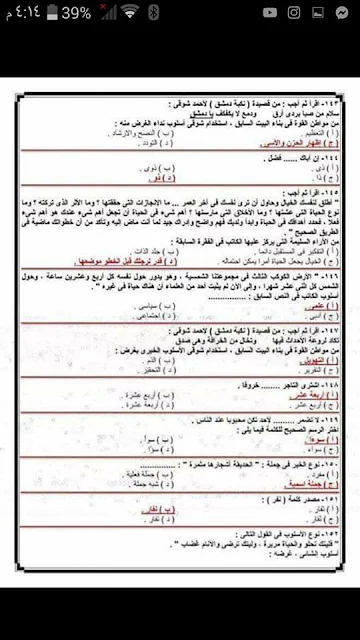 ٤:١٤ م 39%
١٤٣- اقرأ ثم أجب : من قصيدة ( نكبة دمشق ) لأحمد شوقى :
سلام من صبا بردى أرق ودمع لا يكفكف يا دمشق
من مواطن القوة فى بناء البيت السابق ، استخدام شوقى أسلوب نداء الغرض منه :
( أ ) التعظيم . ( ب ) النصح والإرشاد .
( ج ) إظهار الحزن والأسى . ( د ) التودد .
١٤٤- إن أباك ...... فضل .
( أ ) ذى . ( ب ) ذوى .
( ج ) ذا . ( د ) ذو .
١٤٥- اقرأ ثم أجب :
" أطلق لنفسك الخيال وحاول أن ترى نفسك فى آخر العمر ... ما الانجازات التى حققتها ؟ وما الأثر الذى تركته ؟ وما
نوع الحياة التى عشتها ؟ وما الأخلاق التى مارستها ؟ أهم شىء فى الحياة أن تجعل أهم شىء عندك هو أهم شىء
فعلا ، فحدد أهدافك فى الحياة وابدأ ولديك فهم واضح وإدراك جيد لما أنت ماض إليه وتأكد من أن خطواتك ماضية فى
الطريق الصحيح "
من الآراء السليمة التى يركز عليها الكاتب فى الفقرة السابقة :
( أ ) التفكير فى المستقبل دائما . ( ب ) جلد الذات .
( ج ) الخيال يجعل الحياة أمرا يمكن احتماله . ( د ) قدر لرجلك قبل الخطو موضعها .
١٤٦- " الأرض الكوكب الثالث فى مجموعتنا الشمسية ، وهو يدور حول نفسه كل أربع وعشرين ساعة ، وحول
الشمس كل اثنى عشر شهرا ، وإلى الآن لم يثبت أحد من العلماء أن هناك حياة فى غيره "
أسلوب الكاتب فى النص السابق : ...............
( أ ) علمى . ( ب ) سياسى .
( ج ) أدبى . ( د ) اجتماعى .
١٤٧- اقرأ ثم أجب : من قصيدة ( نكبة دمشق ) لأحمد شوقى :
تكاد لروعة الأحداث فيها وتخال من الخرافة وهى صدق
من مواطن القوة فى بناء البيت السابق ، استخدام شوقى الأسلوب الخبرى بغرض :
( أ ) التهويل . ( ب ) الذم .
( ج ) التقرير . ( د ) التحقير .
١٤٨- اشترى التاجر ........ خروفا .
( أ ) أربعة عشر . ( ب ) أربع عشرة .
( ج ) أربع عشر . ( د ) أربعة عشرة .
١٤٩- لا تضمر ........ لأحد تكن محبوبا عند الناس .
اختر الرسم الصحيح للكلمة فيما يلى :
( أ ) سوءا . ( ب ) سوأ .
( ج ) سواء . ( د ) سوؤا .
١٥٠- نوع الخبر فى جملة : " الحديقة أشجارها مثمرة " : ...............
( أ ) مفرد . ( ب ) جملة فعلية .
( ج ) جملة اسمية . ( د ) شبه جملة .
١٥١- مصدر كلمة ( نفر ) :
( أ ) نَفار . ( ب ) نِفار .
( ج ) نُفار . ( د ) نفار .
١٥٢- نوع الأسلوب فى القول التالى :
" فليتك تحلو والحياة مريرة ، وليتك ترضى والأنام غضاب " .
أسلوب إنشائى ، غرضه :